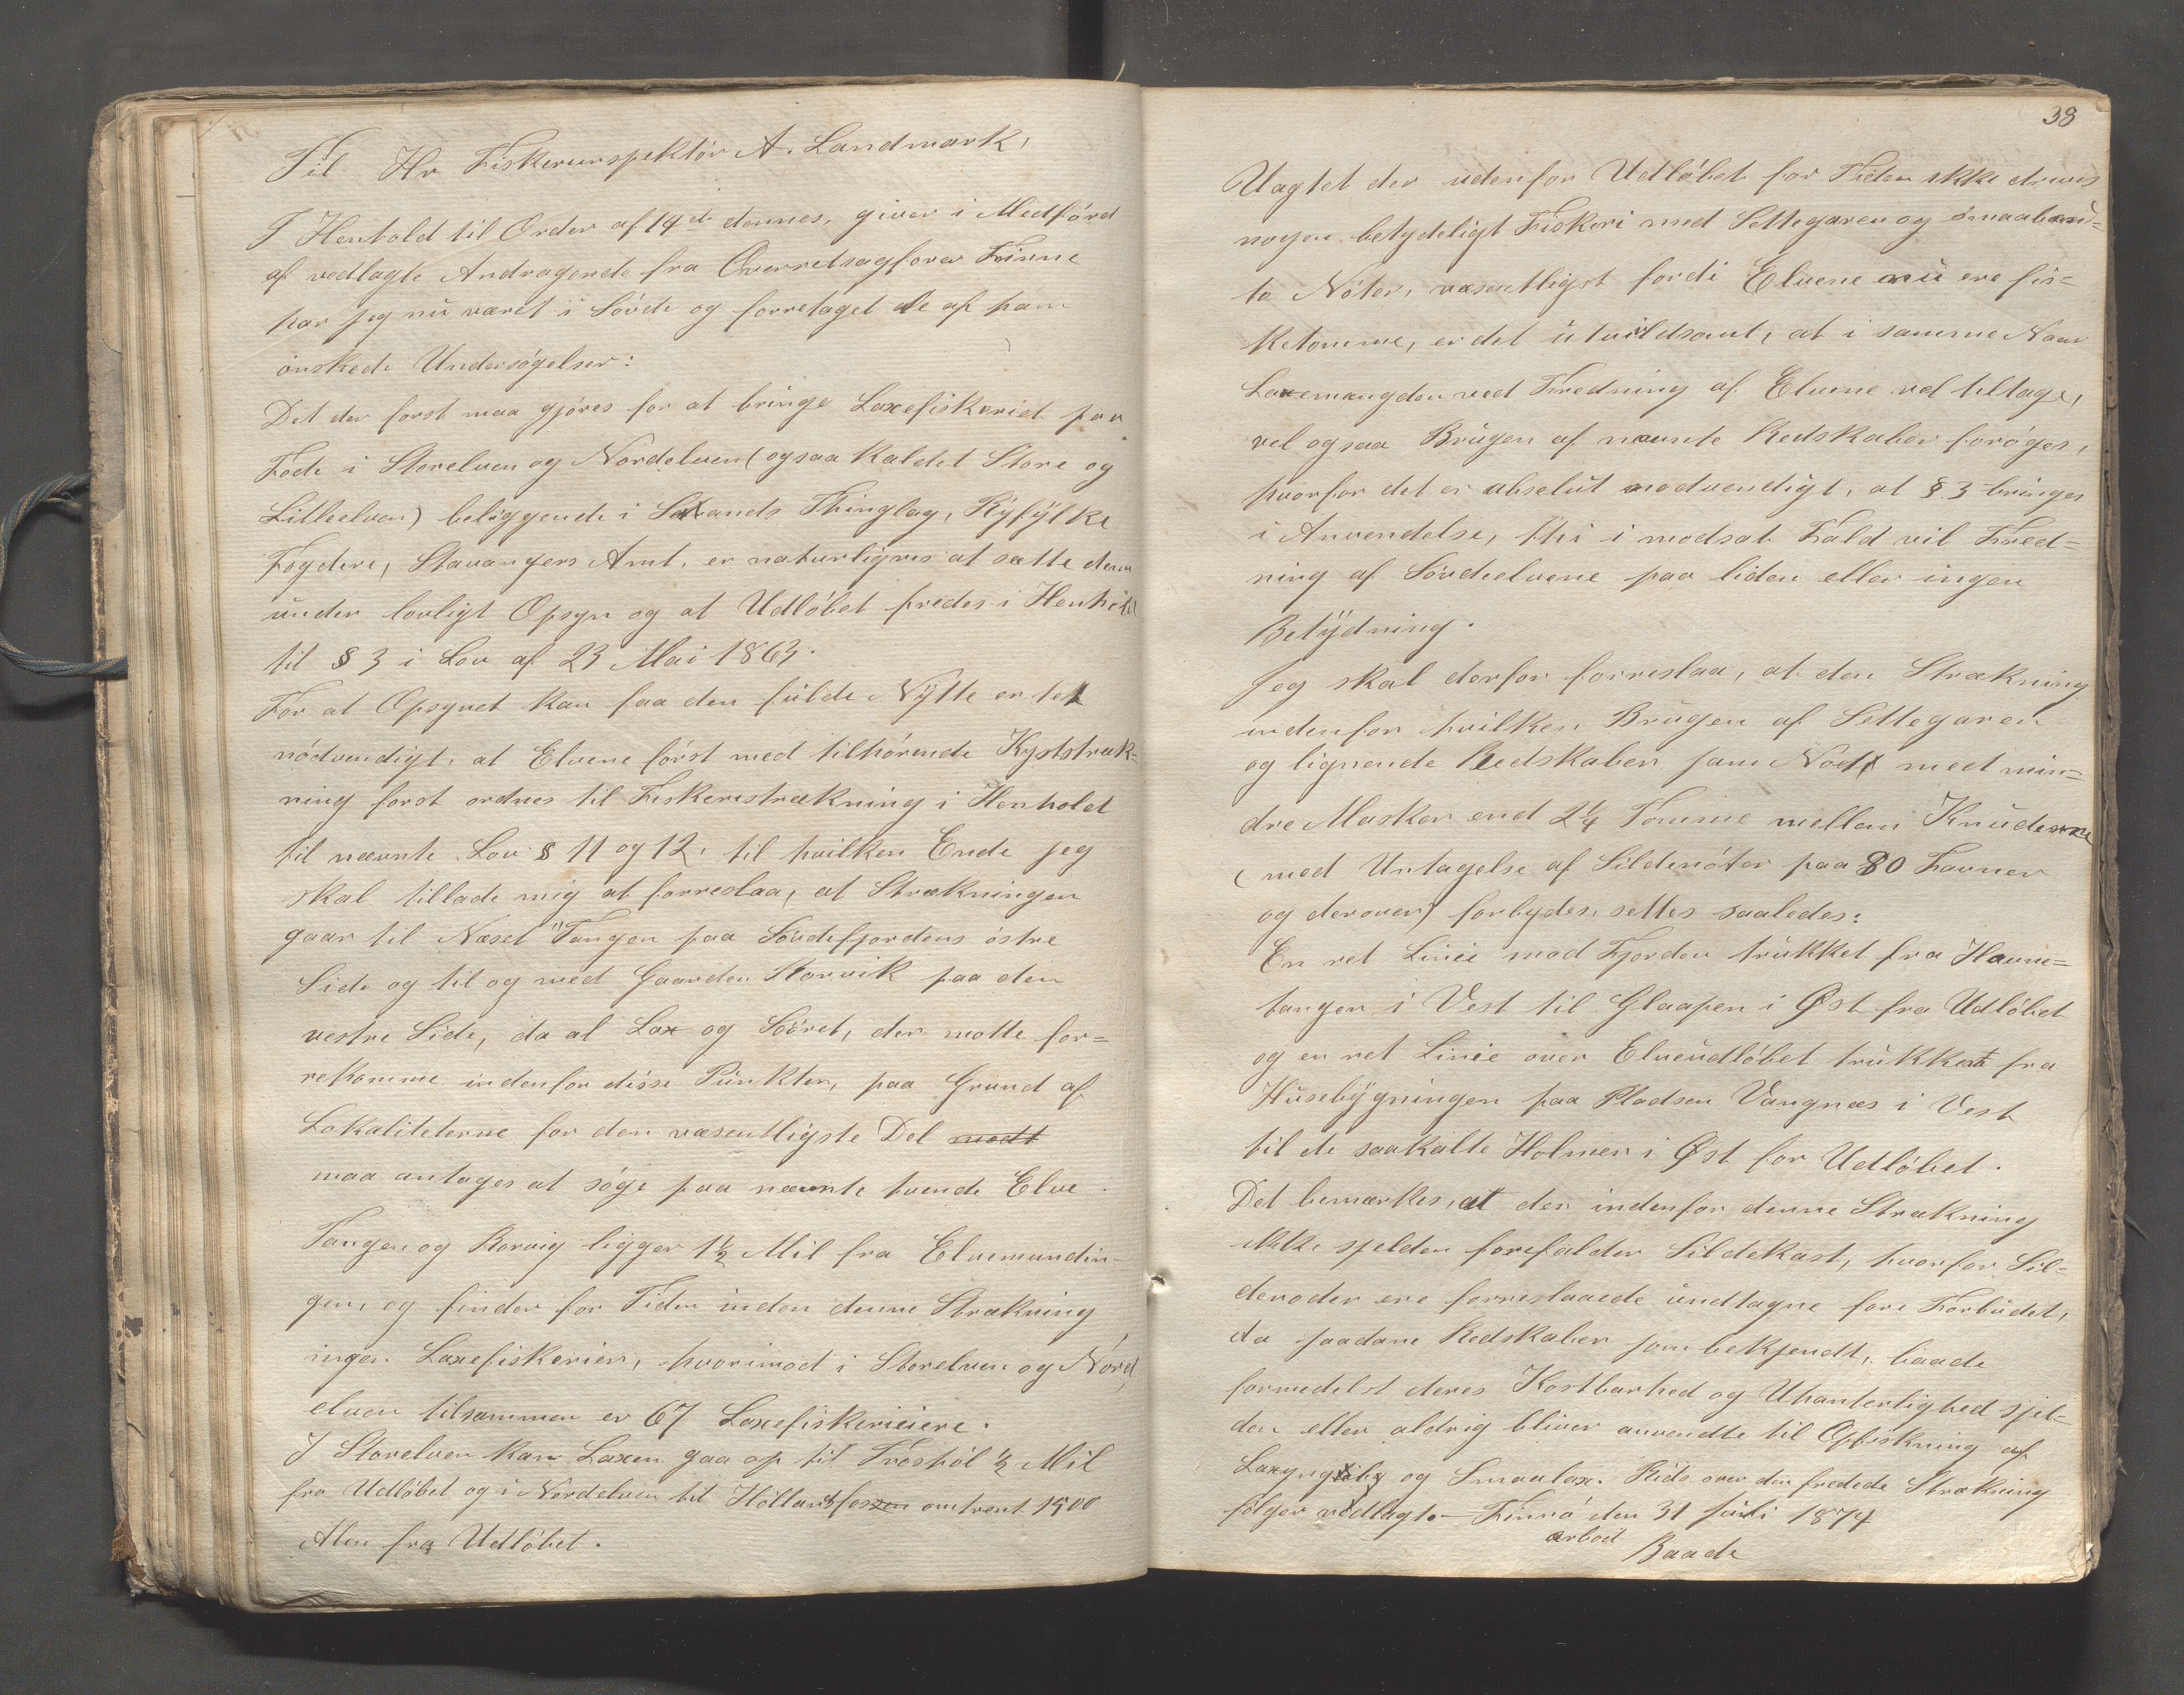 Til Hr Fiskerunspektör A. Landmark,
I Henhold til Order af 14de dennes, giver i Medförd
af vedlagte Andragende fra Overretsagförer Finne
har jeg nu været i Sövde og forretaget de af ham
önskede Undersögelser:
Det der först maa gjöres for at bringe Laxefiskeriet paa
Fode i Storelven og Nordelven (ogsaa kaldet Store og
Lilleelven) beliggende i Sands Thinglag, Ryfylke
Fogderi, Stavangers Amt, er naturligvis at sætte dem
under lovligt Opsyn og at Udlöbet fredes i Henhold
til § 3 i Lov af 23 Mai 1863.
For at Opsynet kan faa den fulde Nytte er det
nödvendigt, at Elvene först med tilhörende Kyststræk-
ning först ordnes til Fiskeristrækning i Henhold
til nævnte Lov § 11 og 12, til hvilken Ende jeg
skal tillade mig at forreslaa, at Strækningen
gaar til Næset "Tangen paa Sövdefjordens östre
Side og til og med Gaarden Storvik paa den
vestre Side, da al Lax og Sööret, der motte for=
rekomme indenfor disse Punkter, paa Grund af
Lokaliteterne for den væsentligste Del modt
maa antages at söge paa nævnte tvende Elve.
Tangen og Rorvig ligger 1½ Mil fra Elvemundin-
gen, og finder for Tiden inden denne Strækning
ingen Laxefiskerier, hvorimod i Storelven og Nord
elven tilsammen er 67 Laxefiskerieiere.
I Storelven kan Laxen gaa op til Fröshöl ½ Mil
fra Udlöbet og i Nordelven til Höllandsfossen omtrent 1500
Alen fra Udlöbet.
38
Uagtet der udenfor Udlöbet for Tiden ikke drives
nogen betydeligt Fiskeri med Settegaren og smaabun=
te Nöter, væsentligst fordi Elvene nu ere fis=
ketomme, er det utvivldsomt, at i samme Naar
Laxemængden ved Fredning af Elvene vel tiltage,
vel ogsaa Brugen af nævnte Redskaber foröges,
hvorfor det er absolut nodvendigt, at § 3 bringes
i Anvendelse, thi i modsat Fald vil Fred=
ning af Sövdeelvene faa liden eller ingen
Betydning.
Jeg skal derfor forreslaa, at den Strækning
indenfor hvilken Brugen af Settegaren
og lignende Redskaber som Nodt med min=
dre Masker end 2¼ Tomme mellem Knuderne
(med Untagelse af Sildenöter paa 80 Favner
og derover) forbydes, settes saaledes:
En ret Linie mod Fjorden trukket fra Havne=
tangen i Vest til Glaapen i Øst fra Udlöbet
og en ret Linie over Elveudlöbet trukket fra
Husebygningen paa Pladsen Vangnæs i Vest
til de saakalte Holmer i Øst for Udlöbet.
Det bemærkes, at der indenfor denne Strækning
ikke sjelden forefalder Sildekast, hvorfor Sil=
denoder ere forreslaaede undtagne fore Forbudet,
da saadane Redskaber som bekjendt, baade
formedelst deres Kostbarhed og Uhanterlighed sjel=
den eller aldrig bliver anvendte til Opfiskning af
Laxyngel og Smaalax. Rids over den fredede Strækning
fölger vedlagt. — Finnö den 31 Juli 1874
ærbod
Baade